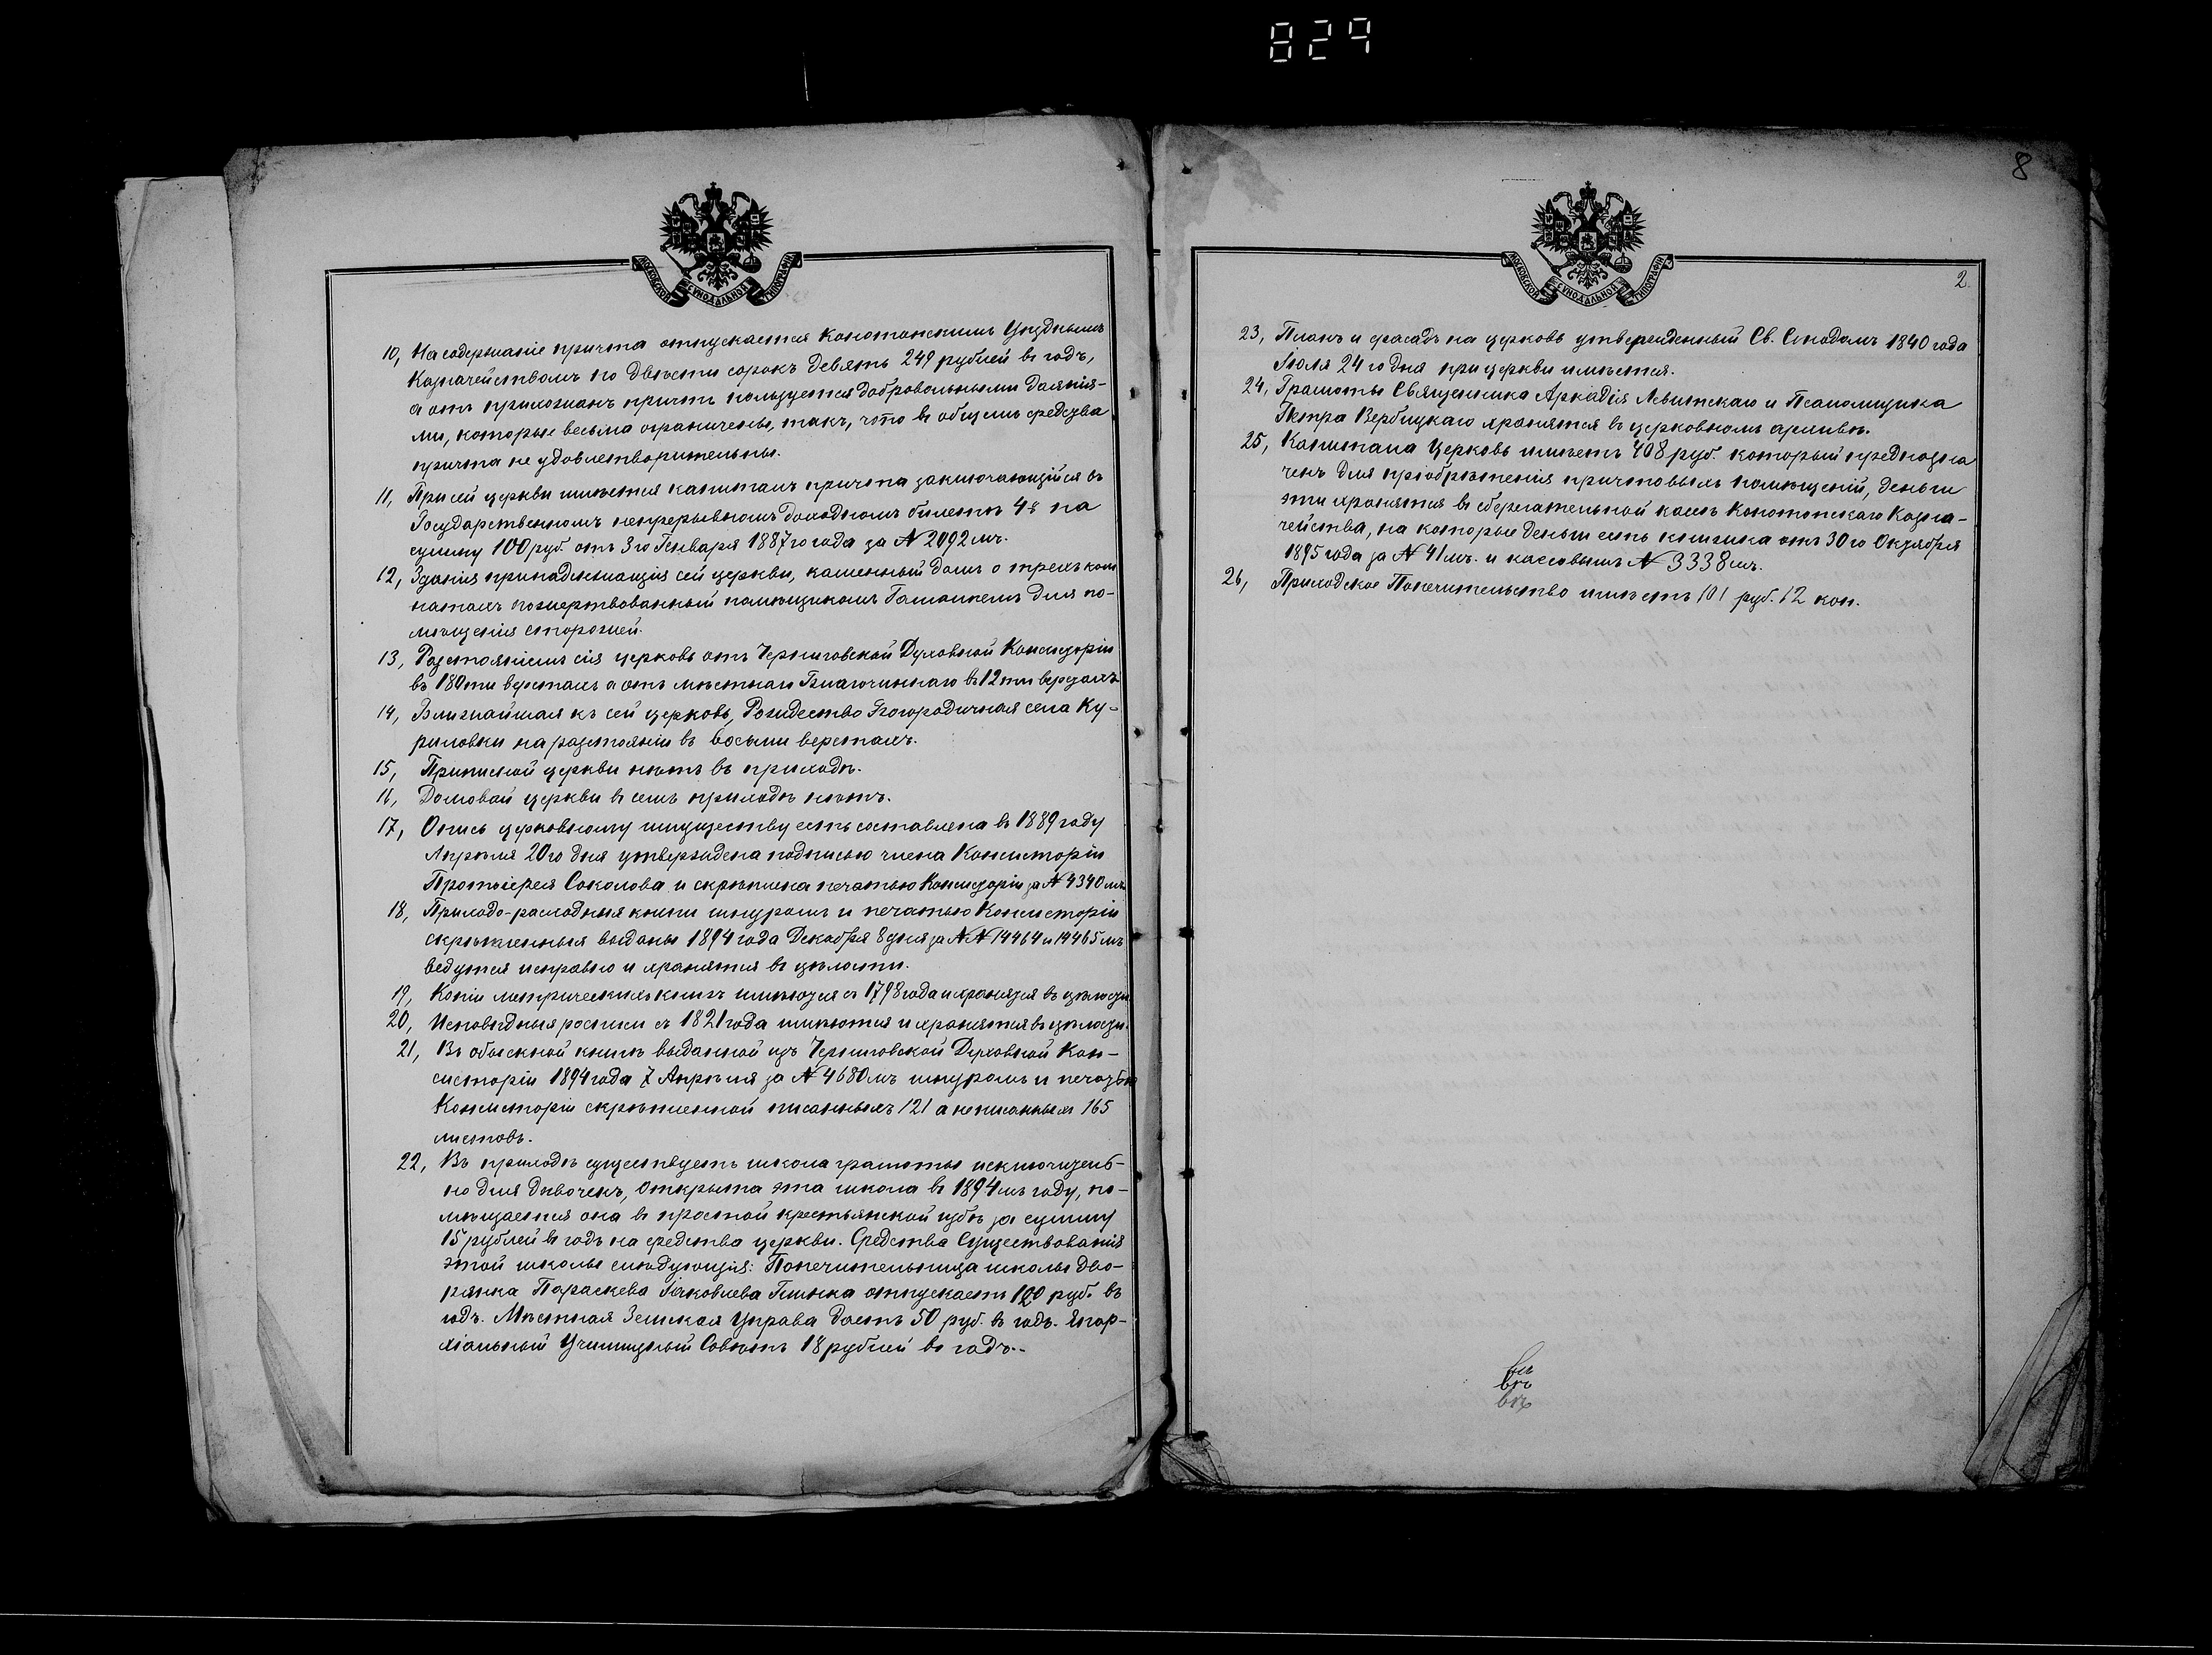 829
8
МОСКОВСКОЙ СѴНОДАЛЬНОЙ ТИПОГРАФІИ
10, На содержаніе причта отпускается Конотопскимъ Уѣзднымъ
Казначействомъ по двѣсти сорокъ девять 249 рублей въ годъ,
а отъ прихожанъ причтъ пользуется добровольными даянія-
ми, которые весьма ограничены, такъ, что въ общемъ средства
причта не удовлетворительны.
11, При сей церкви имѣется капиталъ причта заключающійся въ
Государственномъ непрерывномъ доходномъ билетѣ 4% на
сумму 100 руб. отъ 3го Генваря 1887го года за № 2092мъ.
12, Зданія принадлежащія сей церкви, каменный домъ о трехъ ком
натахъ пожертвованный помѣщикомъ для по-
мѣщенія сторожей.
13, Разстояніемъ сія церковь отъ Черниговской Духовной Консисторіи
въ 180ти верстахъ а отъ мѣстнаго Благочиннаго въ 12ти верстахъ
14, Ближайшая къ сей церковь, Рождество Богородичная села Ку-
риловки на разстояніи въ восьми верстахъ.
15, Приписной церкви нѣтъ въ приходѣ.
16, Домовой церкви въ семъ приходѣ нѣтъ.
17, Опись церковному имуществу есть составлена въ 1889 году
Апрѣля 20го дня утверждена подписью члена Консисторіи
Протоіерея Соколова и скрѣплена печатью Консисторіи за № 4340мъ
18, Приходо-расходныя книги шнуромъ и печатью Консисторіи
скрѣпленныя выданы 1894 года Декабря 8 дня за №№ 14464 и 14465мъ
ведутся исправно и хранятся въ цѣлости.
19, Копіи метрическихъ книгъ имѣются съ 1798 года и хранятся въ цѣлости
20, Исповѣдныя росписи съ 1821 года имѣются и хранятся въ цѣлости.
21, Въ обыскной книгѣ выданной изъ Черниговской Духовной Кон-
систоріи 1894 года 7 Апрѣля за № 4680мъ шнуромъ и печатью
Консисторіи скрѣпленной писанныхъ 121 а неписанныхъ 165
листовъ.
22, Въ приходѣ существуетъ школа грамоты исключитель-
но для дѣвочекъ, открыта эта школа въ 1894мъ году, по-
мѣщается она въ простой крестьянской избѣ за сумму
15 рублей въ годъ на средства церкви. Средства существованія
этой школы слѣдующія: Попечительница школы дво-
рянка Параскева Іяковлева Глинка отпускаетъ 120 руб. въ
годъ. Мѣстная Земская Управа даетъ 50 руб. въ годъ. Епар-
хіальный Училищный Совѣтъ 18 рублей въ годъ.-
МОСКОВСКОЙ СѴНОДАЛЬНОЙ ТИПОГРАФІИ
2.
23, Планъ и фасадъ на церковь утвержденный Св. Синодомъ 1840 года
Іюля 24го дня при церкви имѣется.
24, Грамоты Священника Аркадія Левитскаго и Псаломщика
Петра Вербицкаго хранятся въ церковномъ архивѣ.
25, Капитала Церковь имѣетъ 408 руб. который предназна
ченъ для пріобрѣтенія причтовыхъ помѣщеній, деньги
эти хранятся въ сберегательной кассѣ Конотопскаго Казна-
чейства, на которые деньги есть книжка отъ 30го Октября
1895 года за № 41мъ. и кассовымъ № 3338мъ.
26, Приходское Попечительство имѣетъ 101 руб. 12 коп.